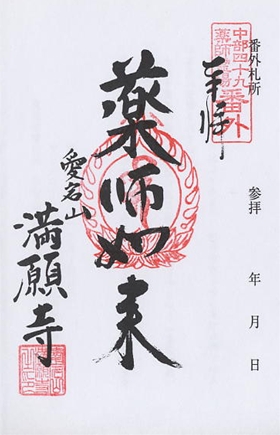 番外札所
中部四十九
薬師霊場
番外
奉拝
参拝 年 月 日
薬師如来
愛宕山
満願寺